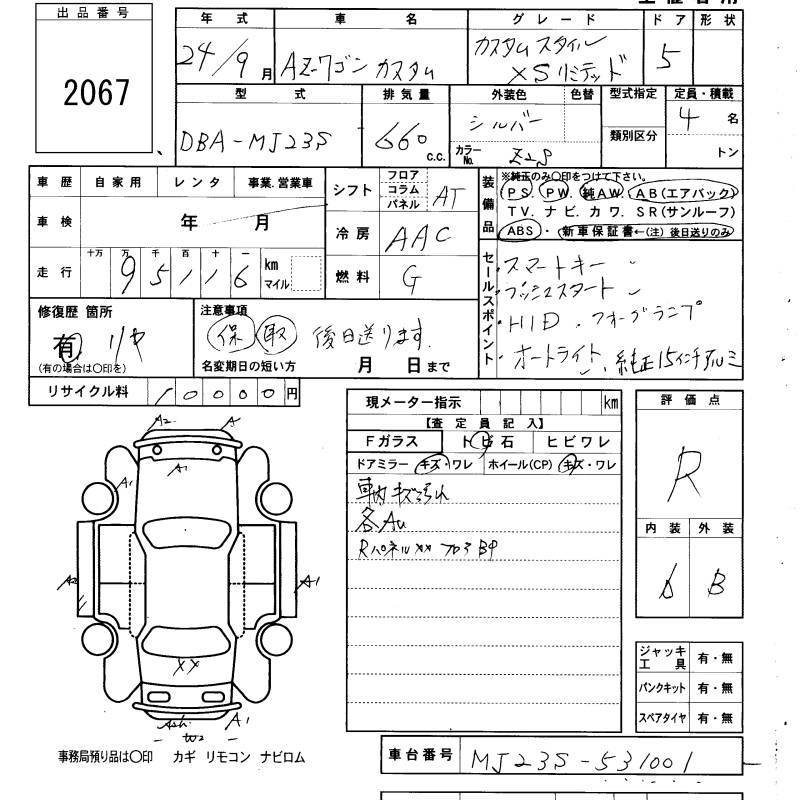 出品番号
2067
年式
24/9月
車名
AZ-ワゴン カスタム
グレード
カスタムスタイル
XSリミテッド
ドア
5
形状
型式
DBA-MJ23S
排気量
660 c.c.
外装色
シルバー
色替
カラーNo.
Z2S
型式指定
類別区分
定員・積載
4 名
トン
車歴 自家用 レンタ 事業.営業車
車検 年 月
走行 十万 万 千 百 十 一
95116 km マイル
シフト フロア コラム パネル AT
冷房 AAC
燃料 G
装備品
※純正のみ○印をつけて下さい。
PS. PW. 純AW. AB(エアバック)
TV. ナビ. カワ. SR(サンルーフ)
ABS・新車保証書←(注)後日送りのみ
セールスポイント
・スマートキー
・プッシュスタート
・HID ・フォーグランプ
・オートライト、純正15インチアルミ
修復歴 箇所
有 リヤ
(有の場合は○印を)
注意事項
保 取 後日送ります.
名変期日の短い方 月 日まで
リサイクル料 10000円
現メーター指示 km
【査定員記入】
Fガラス トビ石 ヒビワレ
ドアミラー キズ・ワレ ホイール(CP) キズ・ワレ
車内キズ汚れ
各AU
RパネルXX フロアBP
評価点
R
内装 外装
B
A2
A1
A1
A2
A1
XX
A1
W2
ジャッキ工具 有・無
パンクキット 有・無
スペアタイヤ 有・無
事務局預り品は○印 カギ リモコン ナビロム
車台番号 MJ23S-531001